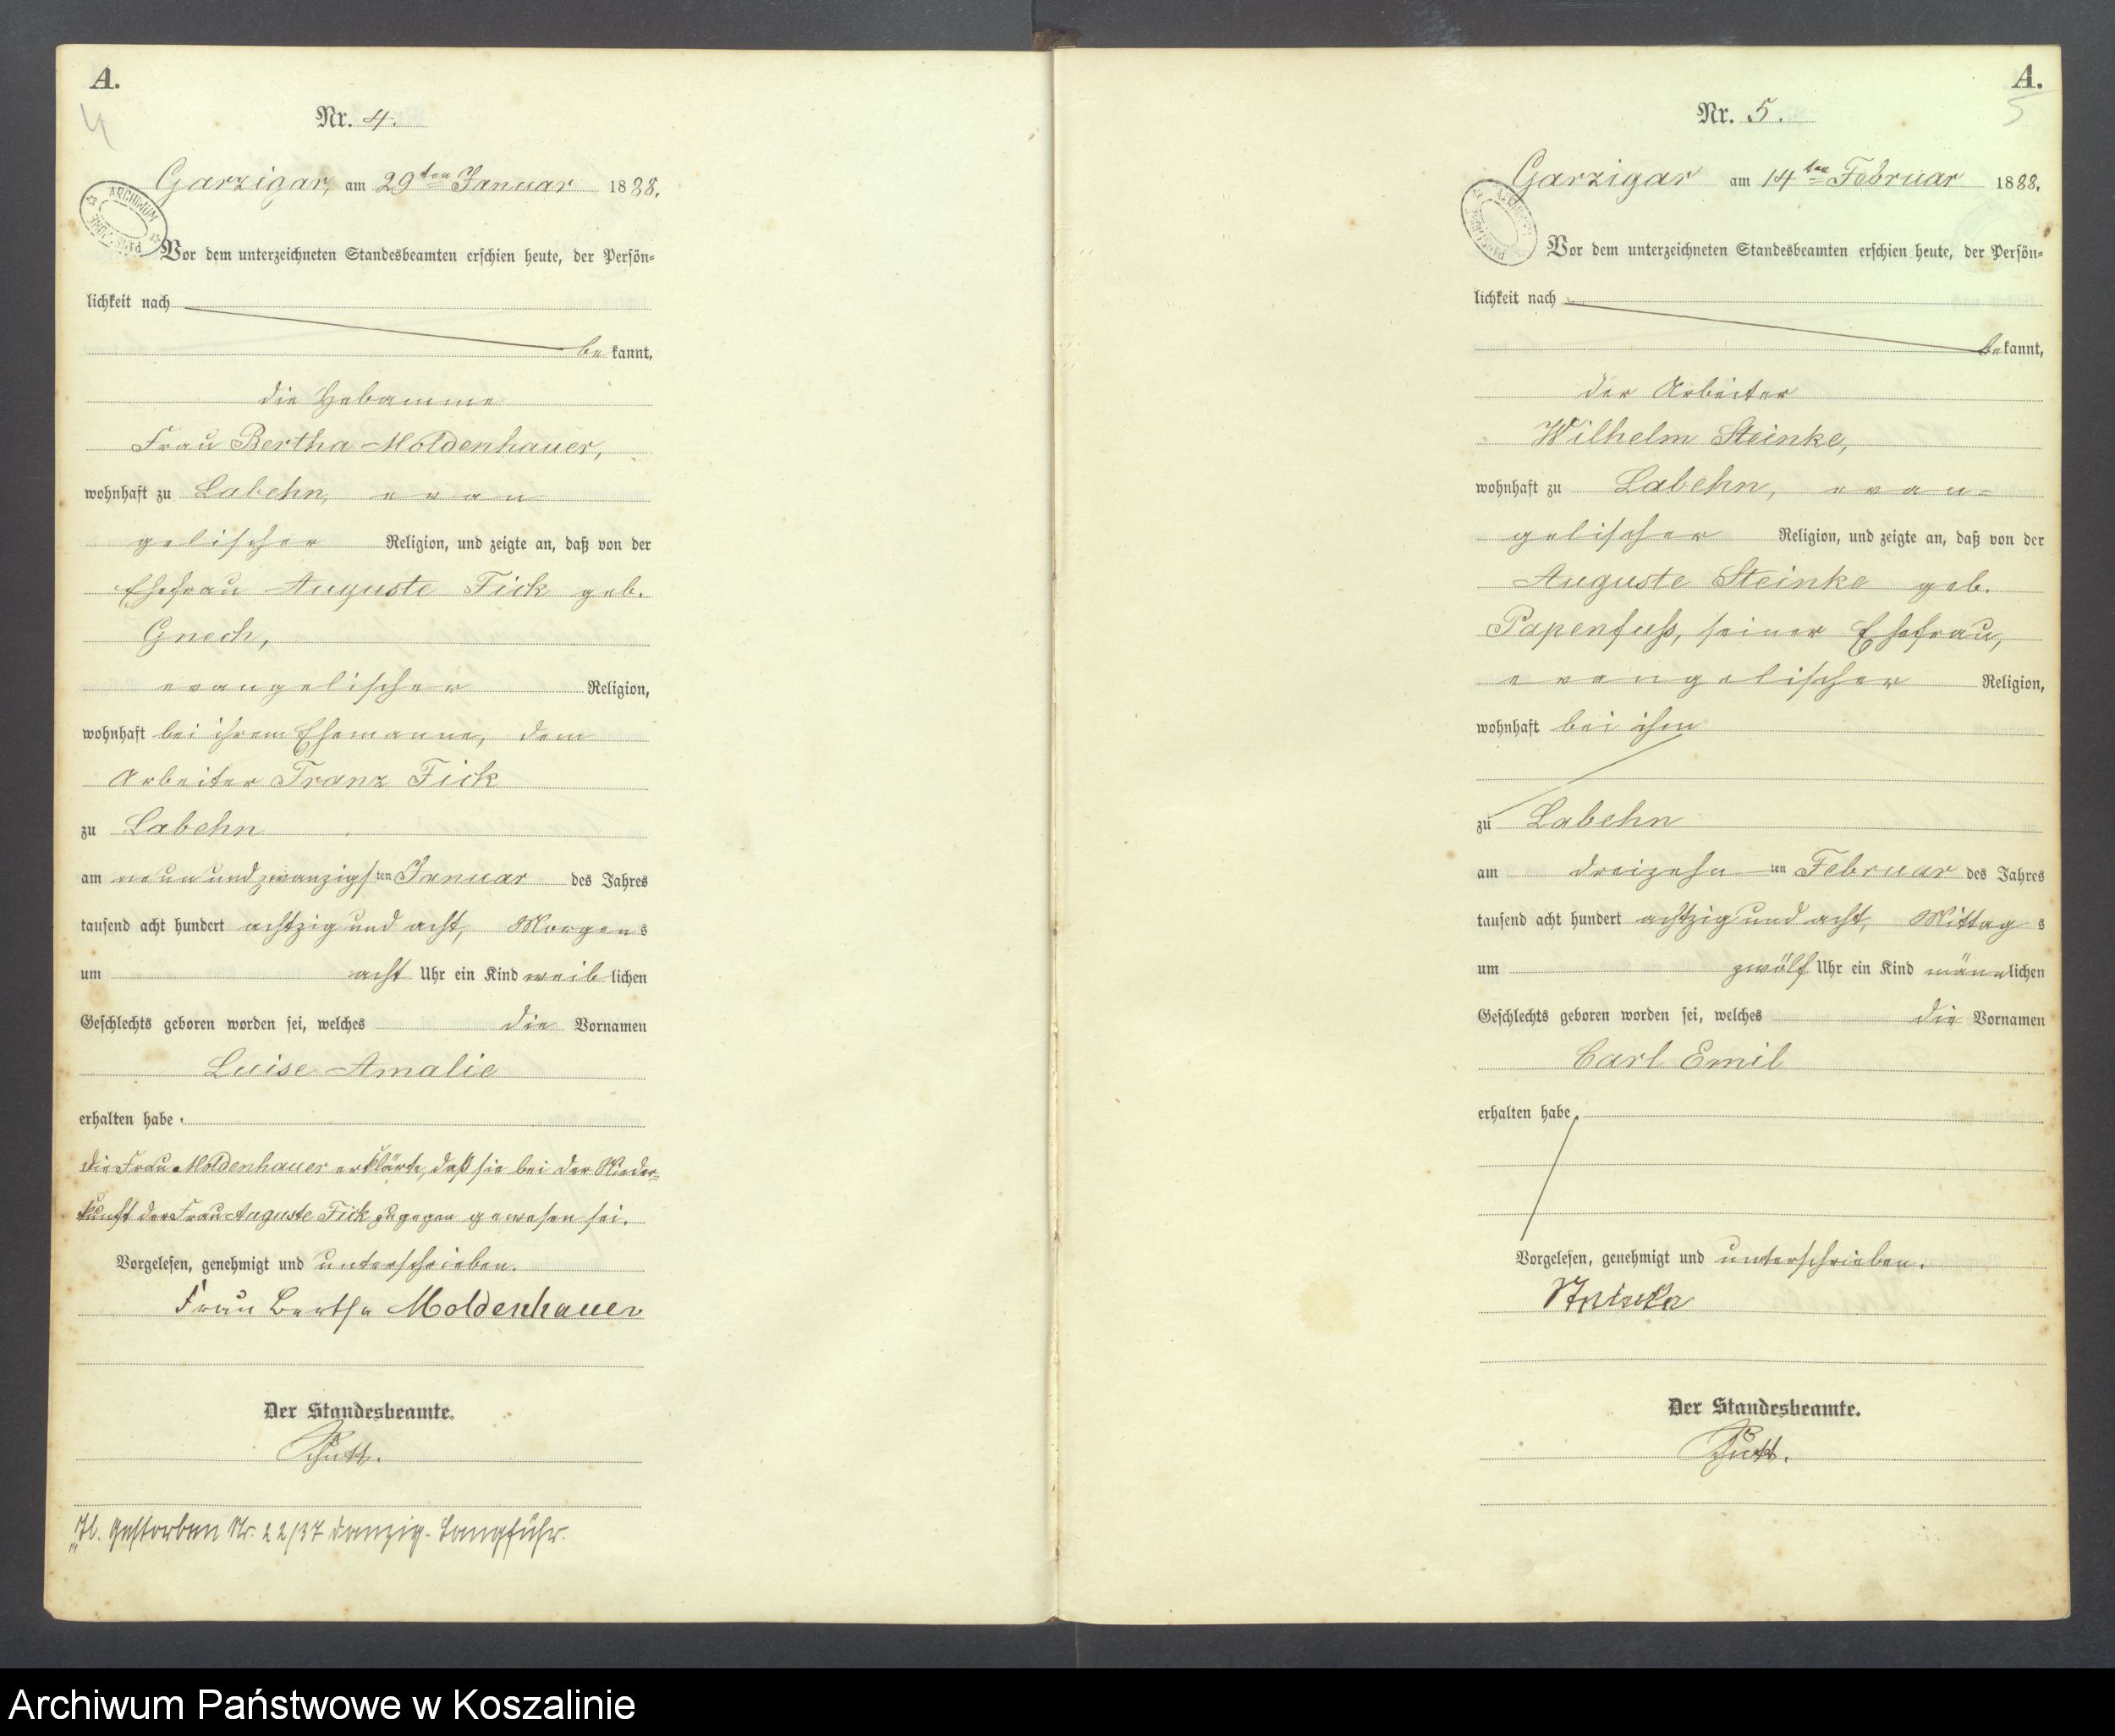 A.
4
Nr. 4.
Garzigar, am 29ten Januar 1888.
ARCHIWUM
Vor dem unterzeichneten Standesbeamten erschien heute, der Persön=
lichkeit nach
bekannt,
die Hebamme
Frau Bertha Moldenhauer,
wohnhaft zu Labehn, evan
gelischer Religion, und zeigte an, daß von der
Ehefrau Auguste Fick geb.
Gnech,
evangelischer Religion,
wohnhaft bei ihrem Ehemanne, dem
Arbeiter Franz Fick
zu Labehn
am neunundzwanzigsten Januar des Jahres
tausend acht hundert achtzig und acht, Morgens
um acht Uhr ein Kind weiblichen
Geschlechts geboren worden sei, welches die Vornamen
Luise Amalie
erhalten habe.
Die Frau Moldenhauer erklärte, daß sie bei der Nieder=
kunft der Frau Auguste Fick zugegen gewesen sei.
Vorgelesen, genehmigt und unterschrieben.
Frau Bertha Moldenhauer
Der Standesbeamte.
Schutt.
gestorben Nr. 22/37 Danzig-Langfuhr.
A.
5
Nr. 5.
Garzigar am 14ten Februar 1888.
Vor dem unterzeichneten Standesbeamten erschien heute, der Persön=
lichkeit nach
bekannt,
der Arbeiter
Wilhelm Steinke,
wohnhaft zu Labehn, evan=
gelischer Religion, und zeigte an, daß von der
Auguste Steinke geb.
Papenfuß, seiner Ehefrau,
evangelischer Religion,
wohnhaft bei ihm
zu Labehn
am dreizehnten Februar des Jahres
tausend acht hundert achtzig und acht, Mittags
um zwölf Uhr ein Kind männlichen
Geschlechts geboren worden sei, welches die Vornamen
Carl Emil
erhalten habe.
Vorgelesen, genehmigt und unterschrieben.
Steinke
Der Standesbeamte.
Schutt.
Archiwum Państwowe w Koszalinie